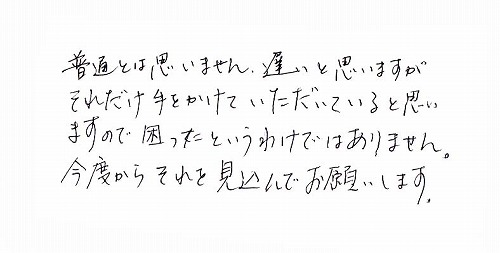 普通とは思いません、遅いと思いますが
それだけ手をかけていただいていると思い
ますので困ったというわけではありません。
今度からそれを見込んでお願いします。